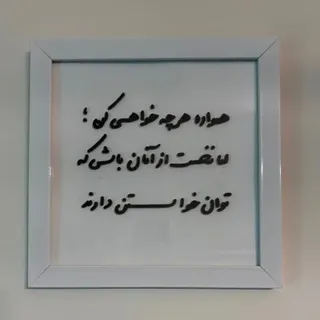 همواره هر چه خواهی کن ؛
اما نخست از آنان باش که
توان خواستن دارند